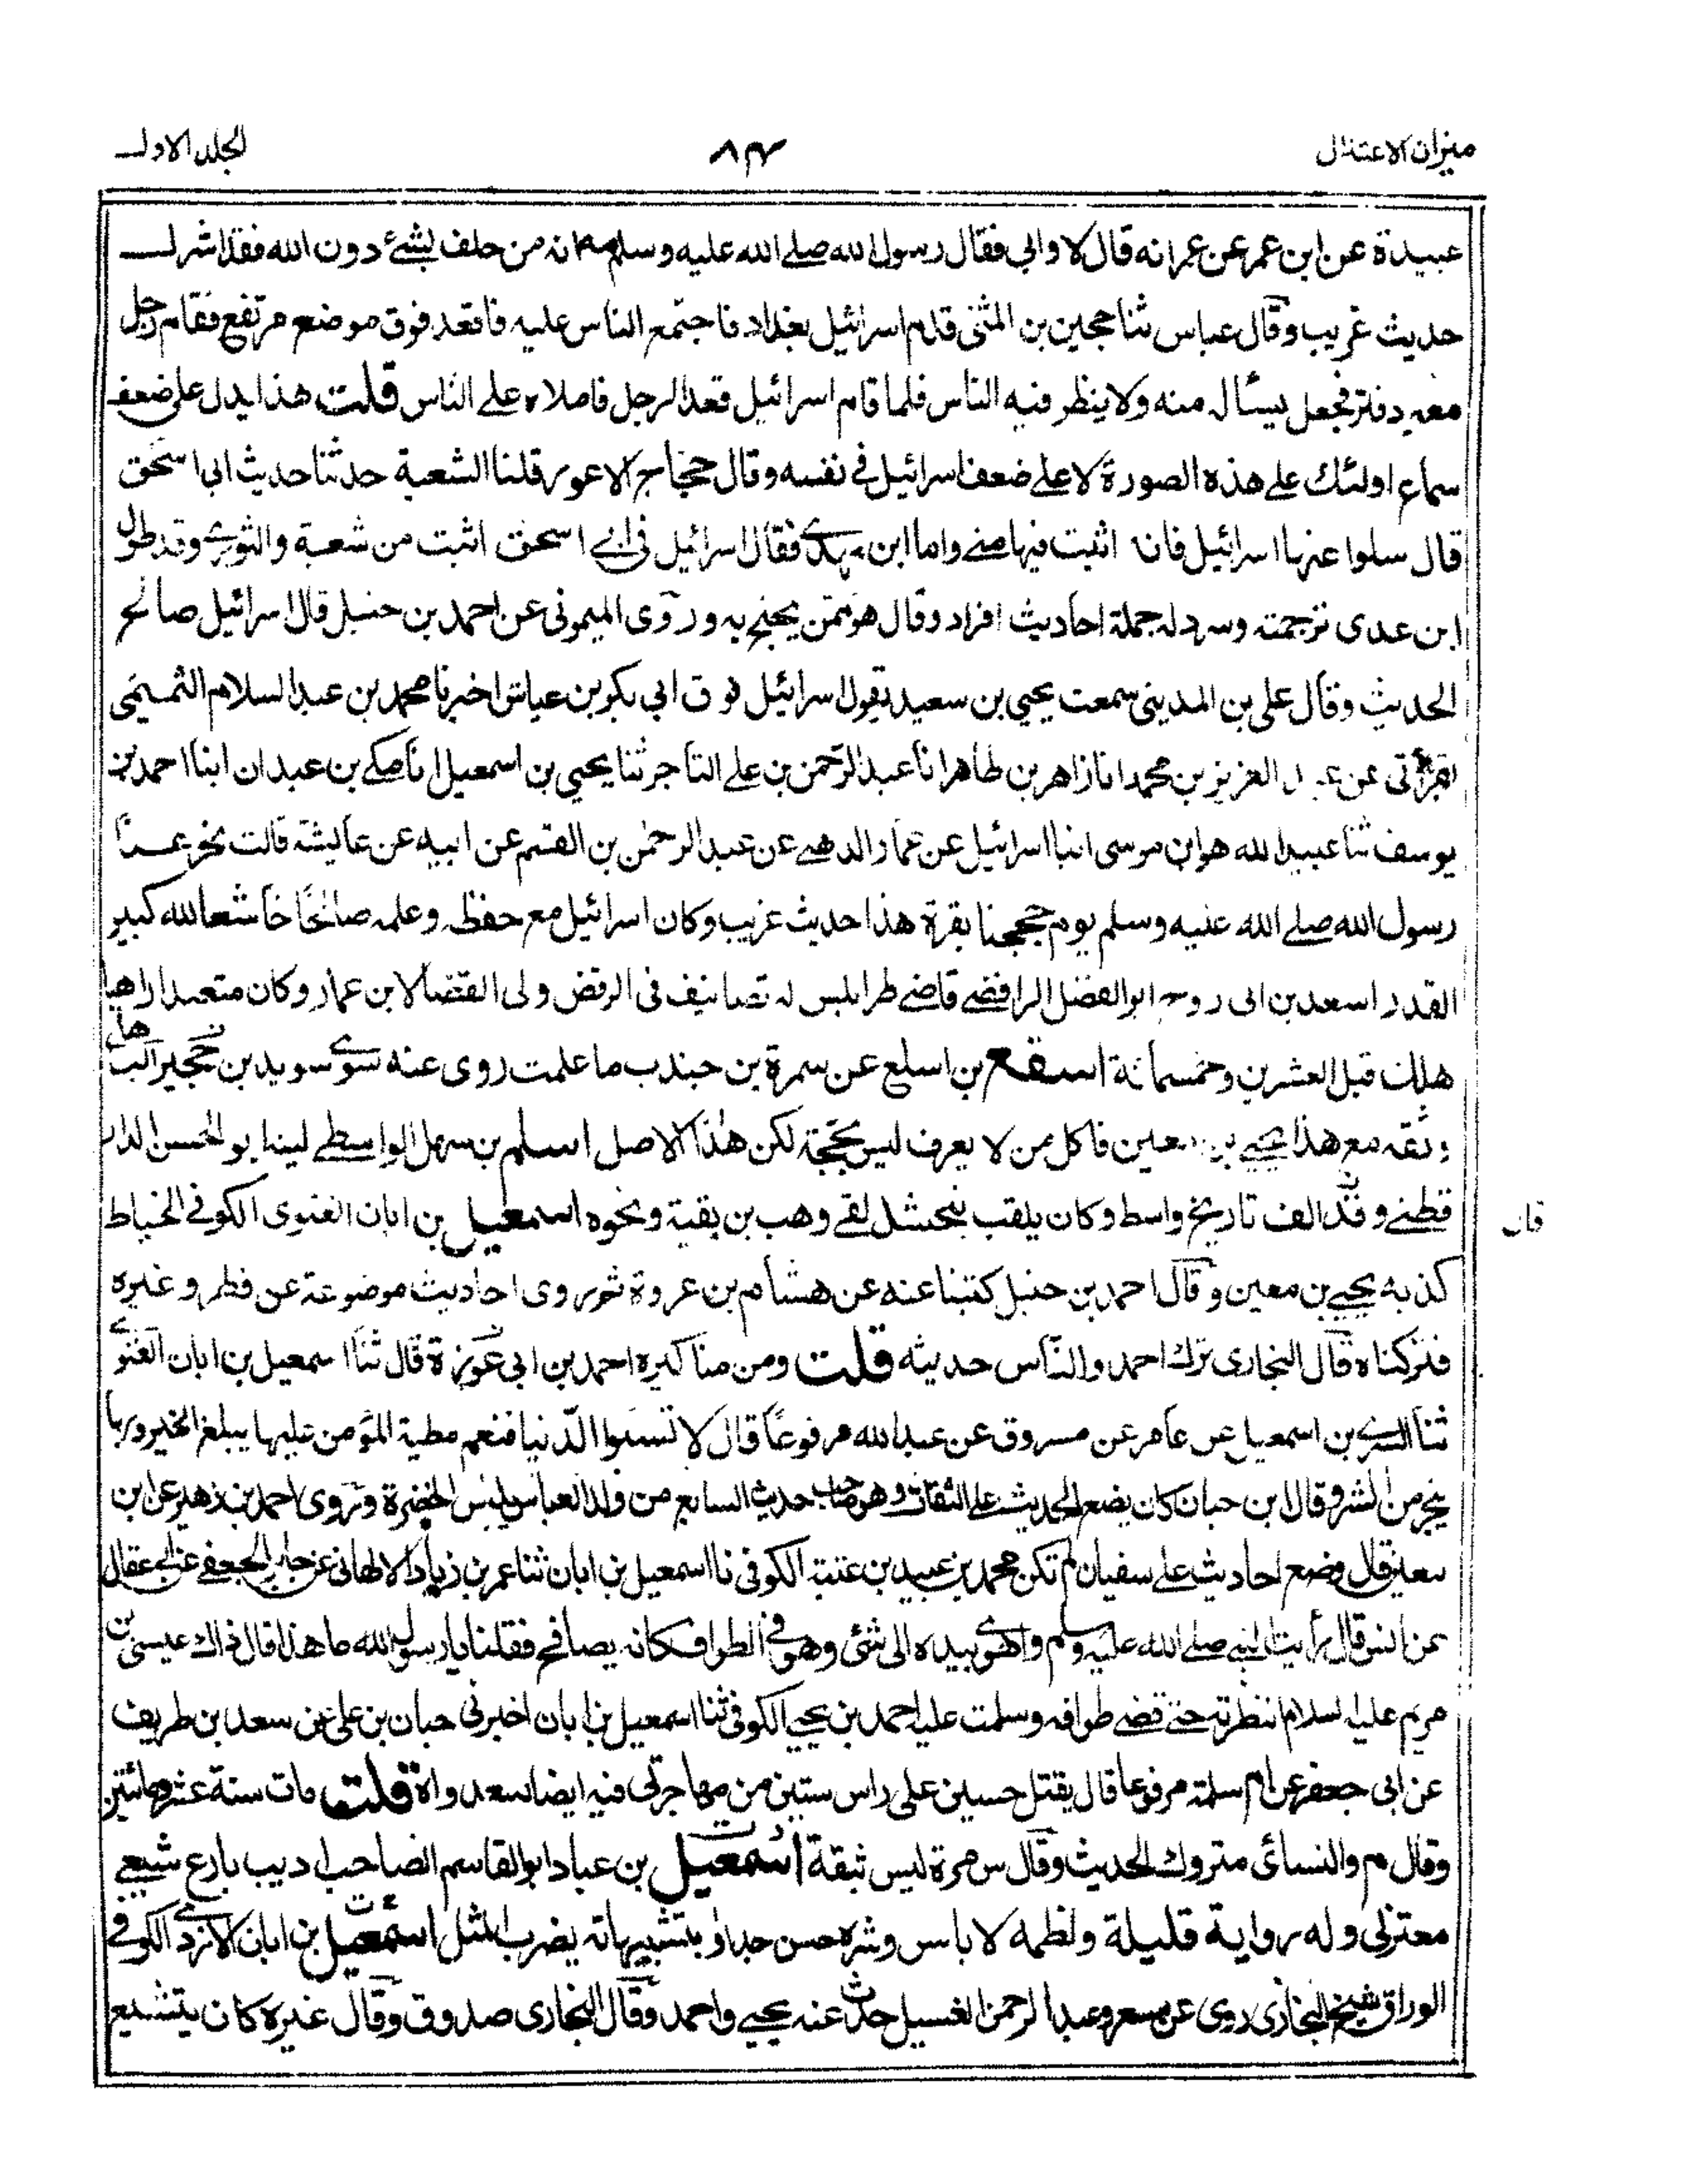 ميزان الاعتدال ٨٣ الجلد الاول
عبيدة عن ابن عمر عن عمر انه قال لا وابي فقال رسول الله صلے الله عليه وسلم مه انه من حلف بشئ دون الله فقد اشرك
حديث غريب وقال عباس ثنا حجين بن المثنى قدم اسرائيل بغداد فاجتمع الناس عليه فاقعد فوق موضع مرتفع فقام رجل
معه دفتر فجعل يسأله منه ولا ينظر فيه الناس فلما قام اسرائيل قعد الرجل فاملاه علے الناس قلت هذا يدل على ضعف
سماع اولئك علے هذه الصورة لا علے ضعف اسرائيل فے نفسه وقال حجاج الاعور قلنا الشعبة حدثنا حديث ابي اسحق
قال سلوا عنها اسرائيل فانه اثبت فيها منے واما ابن مهدے فقال اسرائيل فى ابے اسحق اثبت من شعبة والثورے وقد طول
ابن عدى ترجمته وسرد له جملة احاديث افراد وقال هو ممن يحتج به وروى الميمونى عن احمد بن حنبل قال اسرائيل صالح
الحديث وقال على بن المدينى سمعت يحيي بن سعيد يقول اسرائيل فوق ابي بكر بن عياش اخبرنا محمد بن عبد السلام التميمي
بقرأتى عن عبد العزيز بن محمد انا زاهر بن طاهر انا عبد الرحمن بن علے التاجر ثنا يحيي بن اسمعيل انا مكے بن عبدان ابنا احمد بن
يوسف ثنا عبيد الله هو ابن موسى انبا اسرائيل عن عمار الدهنے عن عبد الرحمن بن القسم عن ابيه عن عايشة قالت نحر عنا
رسول الله صلے الله عليه وسلم يوم حججنا بقرة هذا حديث غريب وكان اسرائيل مع حفظه وعلمه صالحًا خاشعا لله كبير
القدر اسعد بن ابى روح ابو الفضل الرافضے قاضے طرابلس له تصانيف فى الرفض ولى القضا لابن عمار وكان متعبدا زاهدا
هلك قبل العشرين وخمسمائة اسقع بن اسلع عن سمرة بن جندب ما علمت روى عنه سوے سويد بن حجير الباهلے
وثقه مع هذا يحيے بن معين فما كل من لا يعرف ليس بحجة لكن هذا الاصل اسلم بن سهل الواسطے لينه ابو الحسن الدار
قطنے وقد الف تاريخ واسط وكان يلقب ببحشل لقے وهب بن بقية ونحوه اسمعيل بن ابان الغنوى الكوفے الخياط
قال
كذبه يحيے بن معين وقال احمد بن حنبل كتبنا عنه عن هشام بن عروة ثم روى احاديث موضوعة عن فطر وغيره
فتركناه قال البخارى ترك احمد والناس حديثه قلت ومن مناكيره احمد بن ابى غرزة قال ثنا اسمعيل بن ابان الغنوے
ثنا السرے بن اسمعيل عن عامر عن مسروق عن عبد الله مرفوعًا قال لا تسبوا الدنيا فنعم مطية المؤمن عليها يبلغ الخير وبها
ينجو من الشر وقال ابن حبان كان يضع الحديث علے الثقات وهو صاحب حديث السابع من ولد العباس يلبس الخضرة وروى احمد بن زهير عن ابن
معين قال وضع احاديث علے سفيان لم تكن محمد بن عبيد بن عتبة الكوفى نا اسمعيل بن ابان ثنا عمر بن زياد الالهانى عن جابر الجعفے عن ابي عقال
عن انس قال رأيت النبے صلے الله عليه وسلم واهوى بيده الى شئ وهو فے الطواف كانه يصافح فقلنا يا رسول الله ما هذا قال ذاك عيسى بن
مريم عليه السلام انتظرته حتے قضے طوافه وسلمت عليه احمد بن يحيے الكوفى ثنا اسمعيل بن ابان اخبرنى حبان بن على عن سعد بن طريف
عن ابى جعفر عن ام سلمة مرفوعا قال يقتل حسين على راس ستين من مهاجرتى فيه ايضا سعد واه قلت مات سنة عشر ومائتين
وقال م والنسائى متروك الحديث وقال س مرة ليس بثقة اسمعيل بن عباد ابو القاسم الصاحب اديب بارع شيعے
معتزلى وله رواية قليلة ولظمه لا باس وشره حسن جدا وبتشبيهاته يضرب المثل اسمعيل بن ابان الازدے الكوفے
الوراق شيخ البخارى روى عن مسعر وعبد الرحمن الغسيل حدث عنه يحيے واحمد وقال البخارى صدوق وقال غيره كان يتشيع